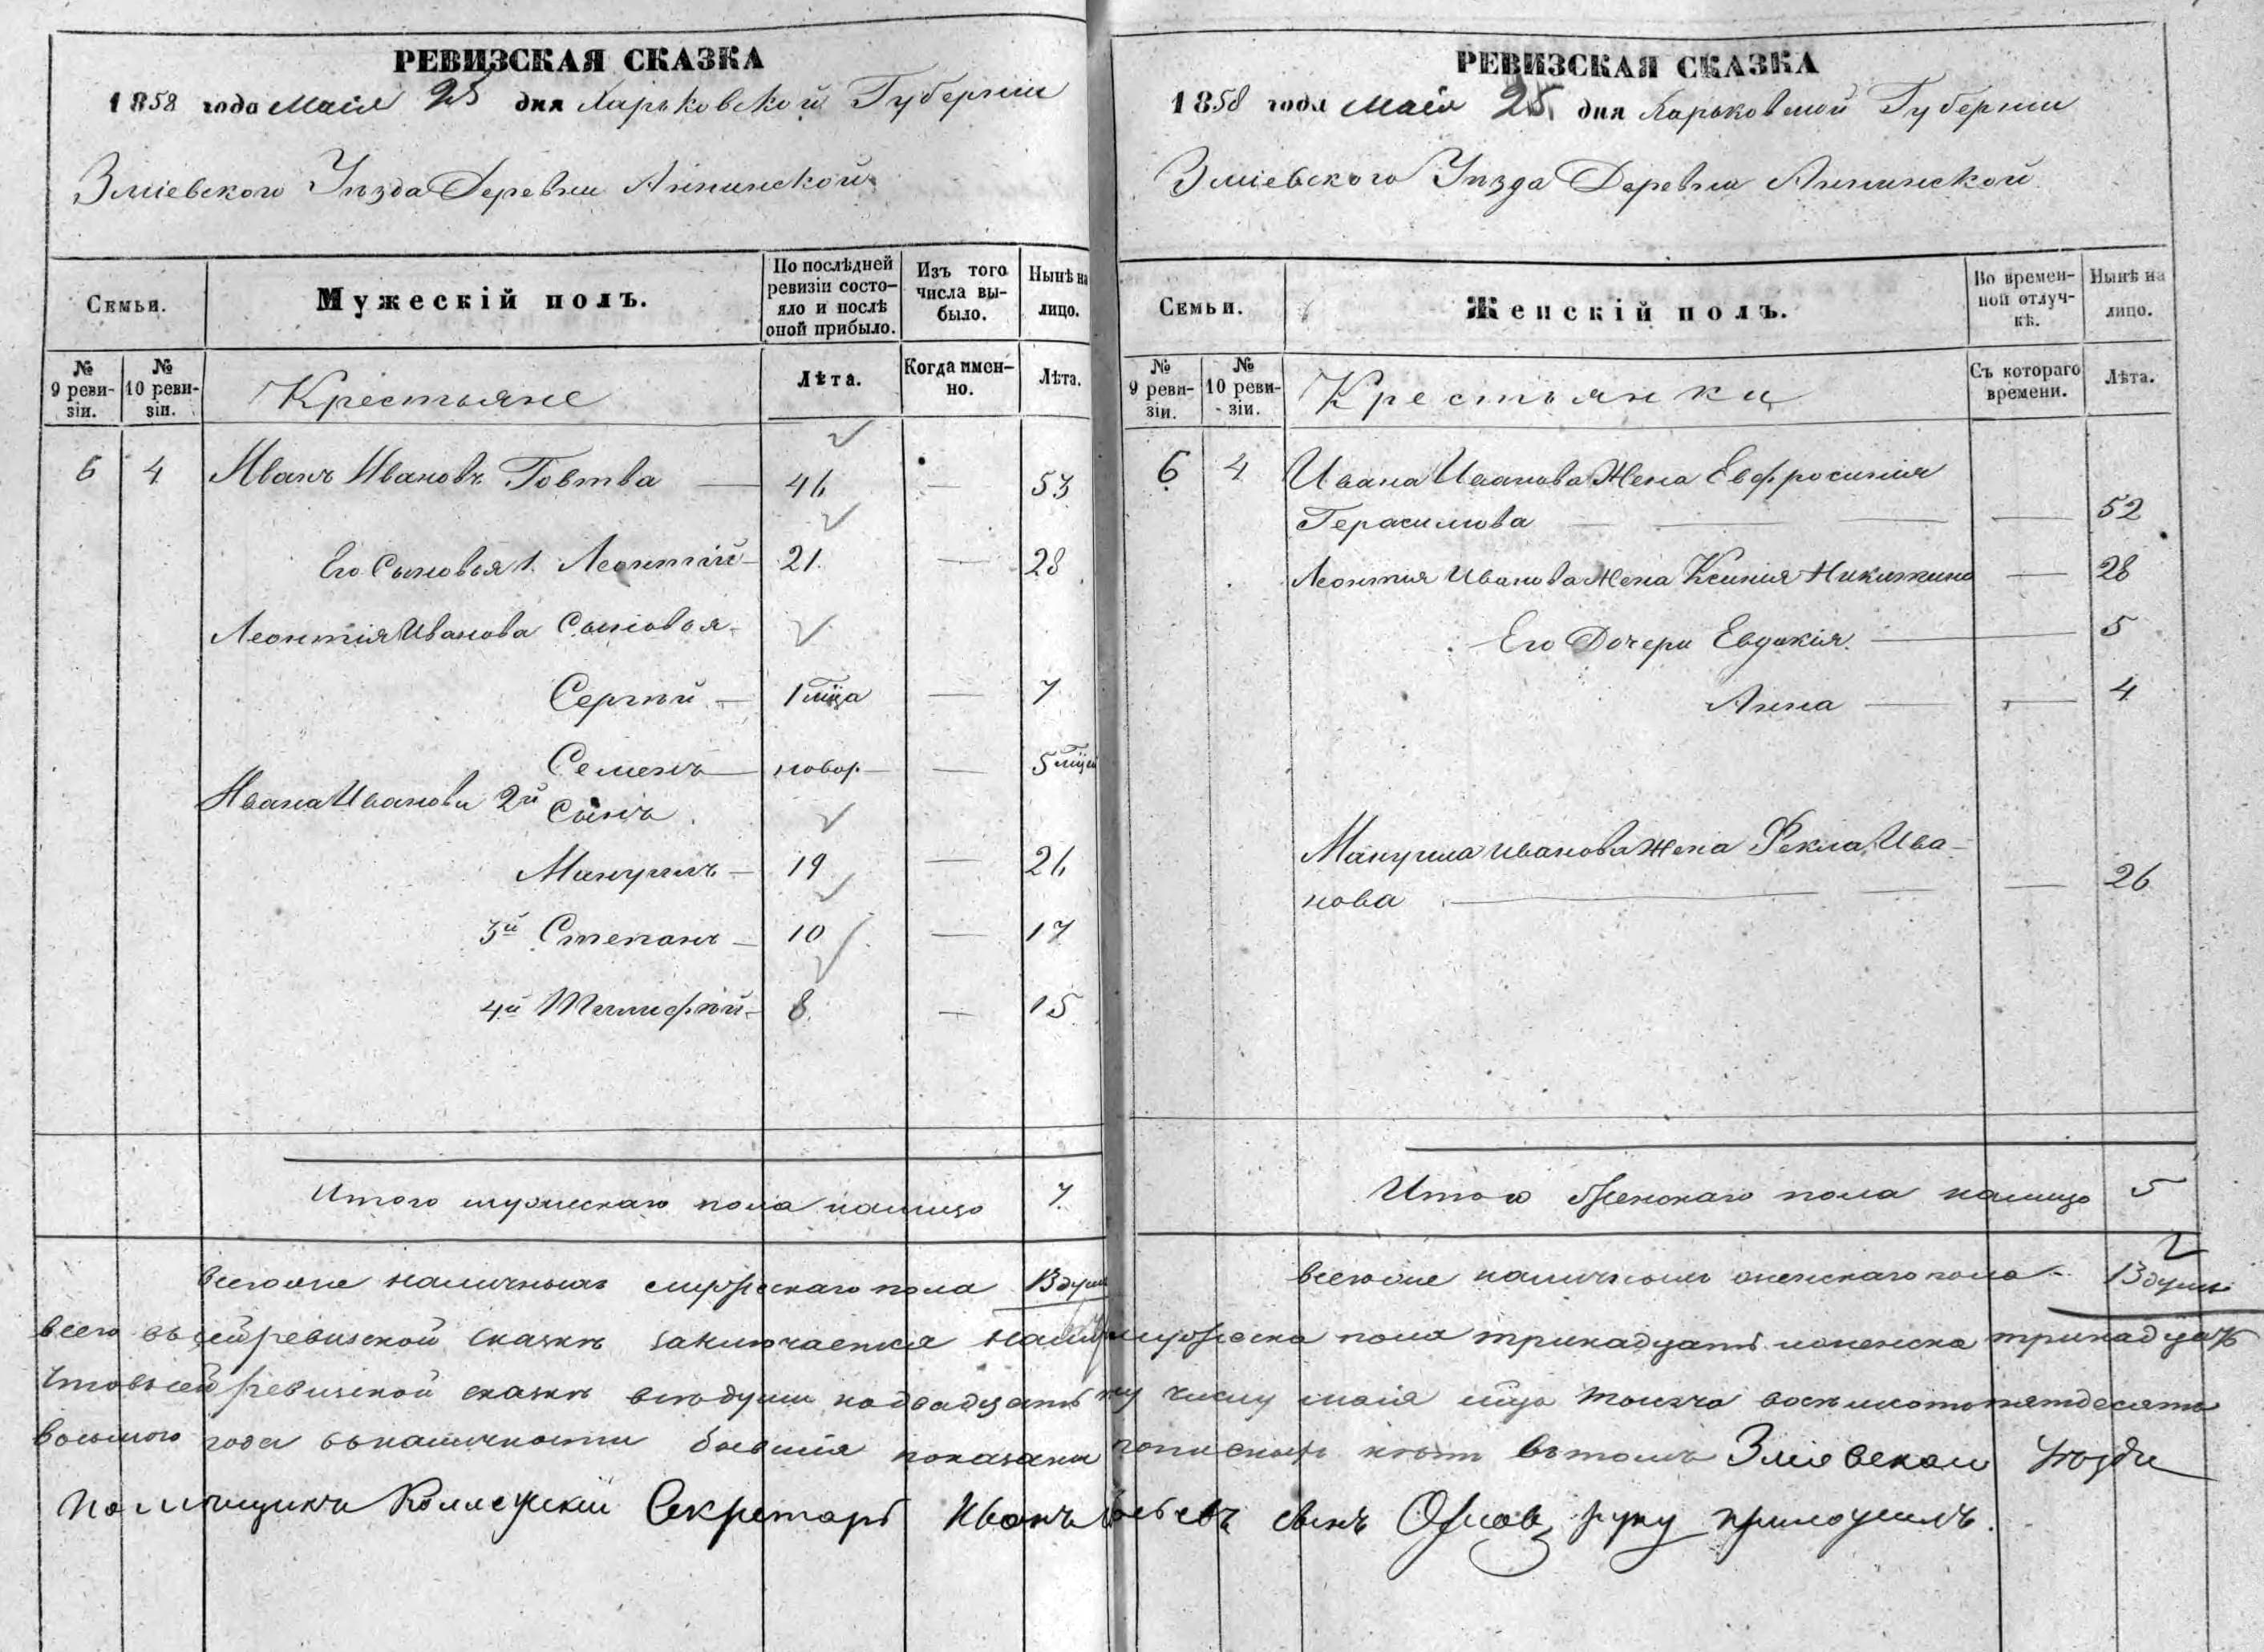 РЕВИЗСКАЯ СКАЗКА
1858 года Маія 25 дня Харьковской Губерніи
Зміевского Уѣзда Деревни Аннинской
Семьи.
Мужескій полъ.
По послѣдней ревизіи состояло и послѣ оной прибыло.
Изъ того числа выбыло.
Нынѣ на лицо.
№ 9 ревизіи.
№ 10 ревизіи.
Крестьяне
Лѣта.
Когда именно.
Лѣта.
6 4 Иванъ Ивановъ Говтва — 46 — 53
Его Сыновья 1. Леонтій — 21. — 28
Леонтія Иванова Сыновья
Сергѣй — 1 мца — 7
Семенъ — новор. — 5 мцы
Ивана Иванова 2й Сынъ
Мануилъ — 19 — 26
3й Степанъ — 10 — 17
4й — 8. — 15
Итого мужескаго пола налицо 7.
всего же наличныхъ мужескаго пола 13 душ
РЕВИЗСКАЯ СКАЗКА
1858 года Маія 25 дня Харьковской Губерніи
Зміевского Уѣзда Деревни Аннинской
Семьи.
Женскій полъ.
Во временной отлучкѣ.
Нынѣ на лицо.
№ 9 ревизіи.
№ 10 ревизіи.
Крестьянки
Съ котораго времени.
Лѣта.
6 4 Ивана Иванова Жена Евфросинія
Герасимова — — 52
Леонтія Иванова Жена Ксинія Никитина — 28
Его Дочери Евдокія. — 5
Анна — — 4
Мануила Иванова Жена Фекла Ива-
нова — — 26
Итого Женскаго пола налицо 5
всего же наличныхъ женскаго пола — 13 душъ
всего въ сей ревизской сказкѣ заключается мужеска пола тринадцать и женска тринадцать
Что въ сей ревизской сказкѣ всѣ души по двадцать число маія мца тысяча восемьсотъ пятдесятъ
восьмого года въ наличности бывшія показаны и нѣтъ въ томъ Зміевскомъ Уѣзде
Помѣщикъ Коллежскій Секретарь Иванъ сынъ Орлов руку приложилъ.